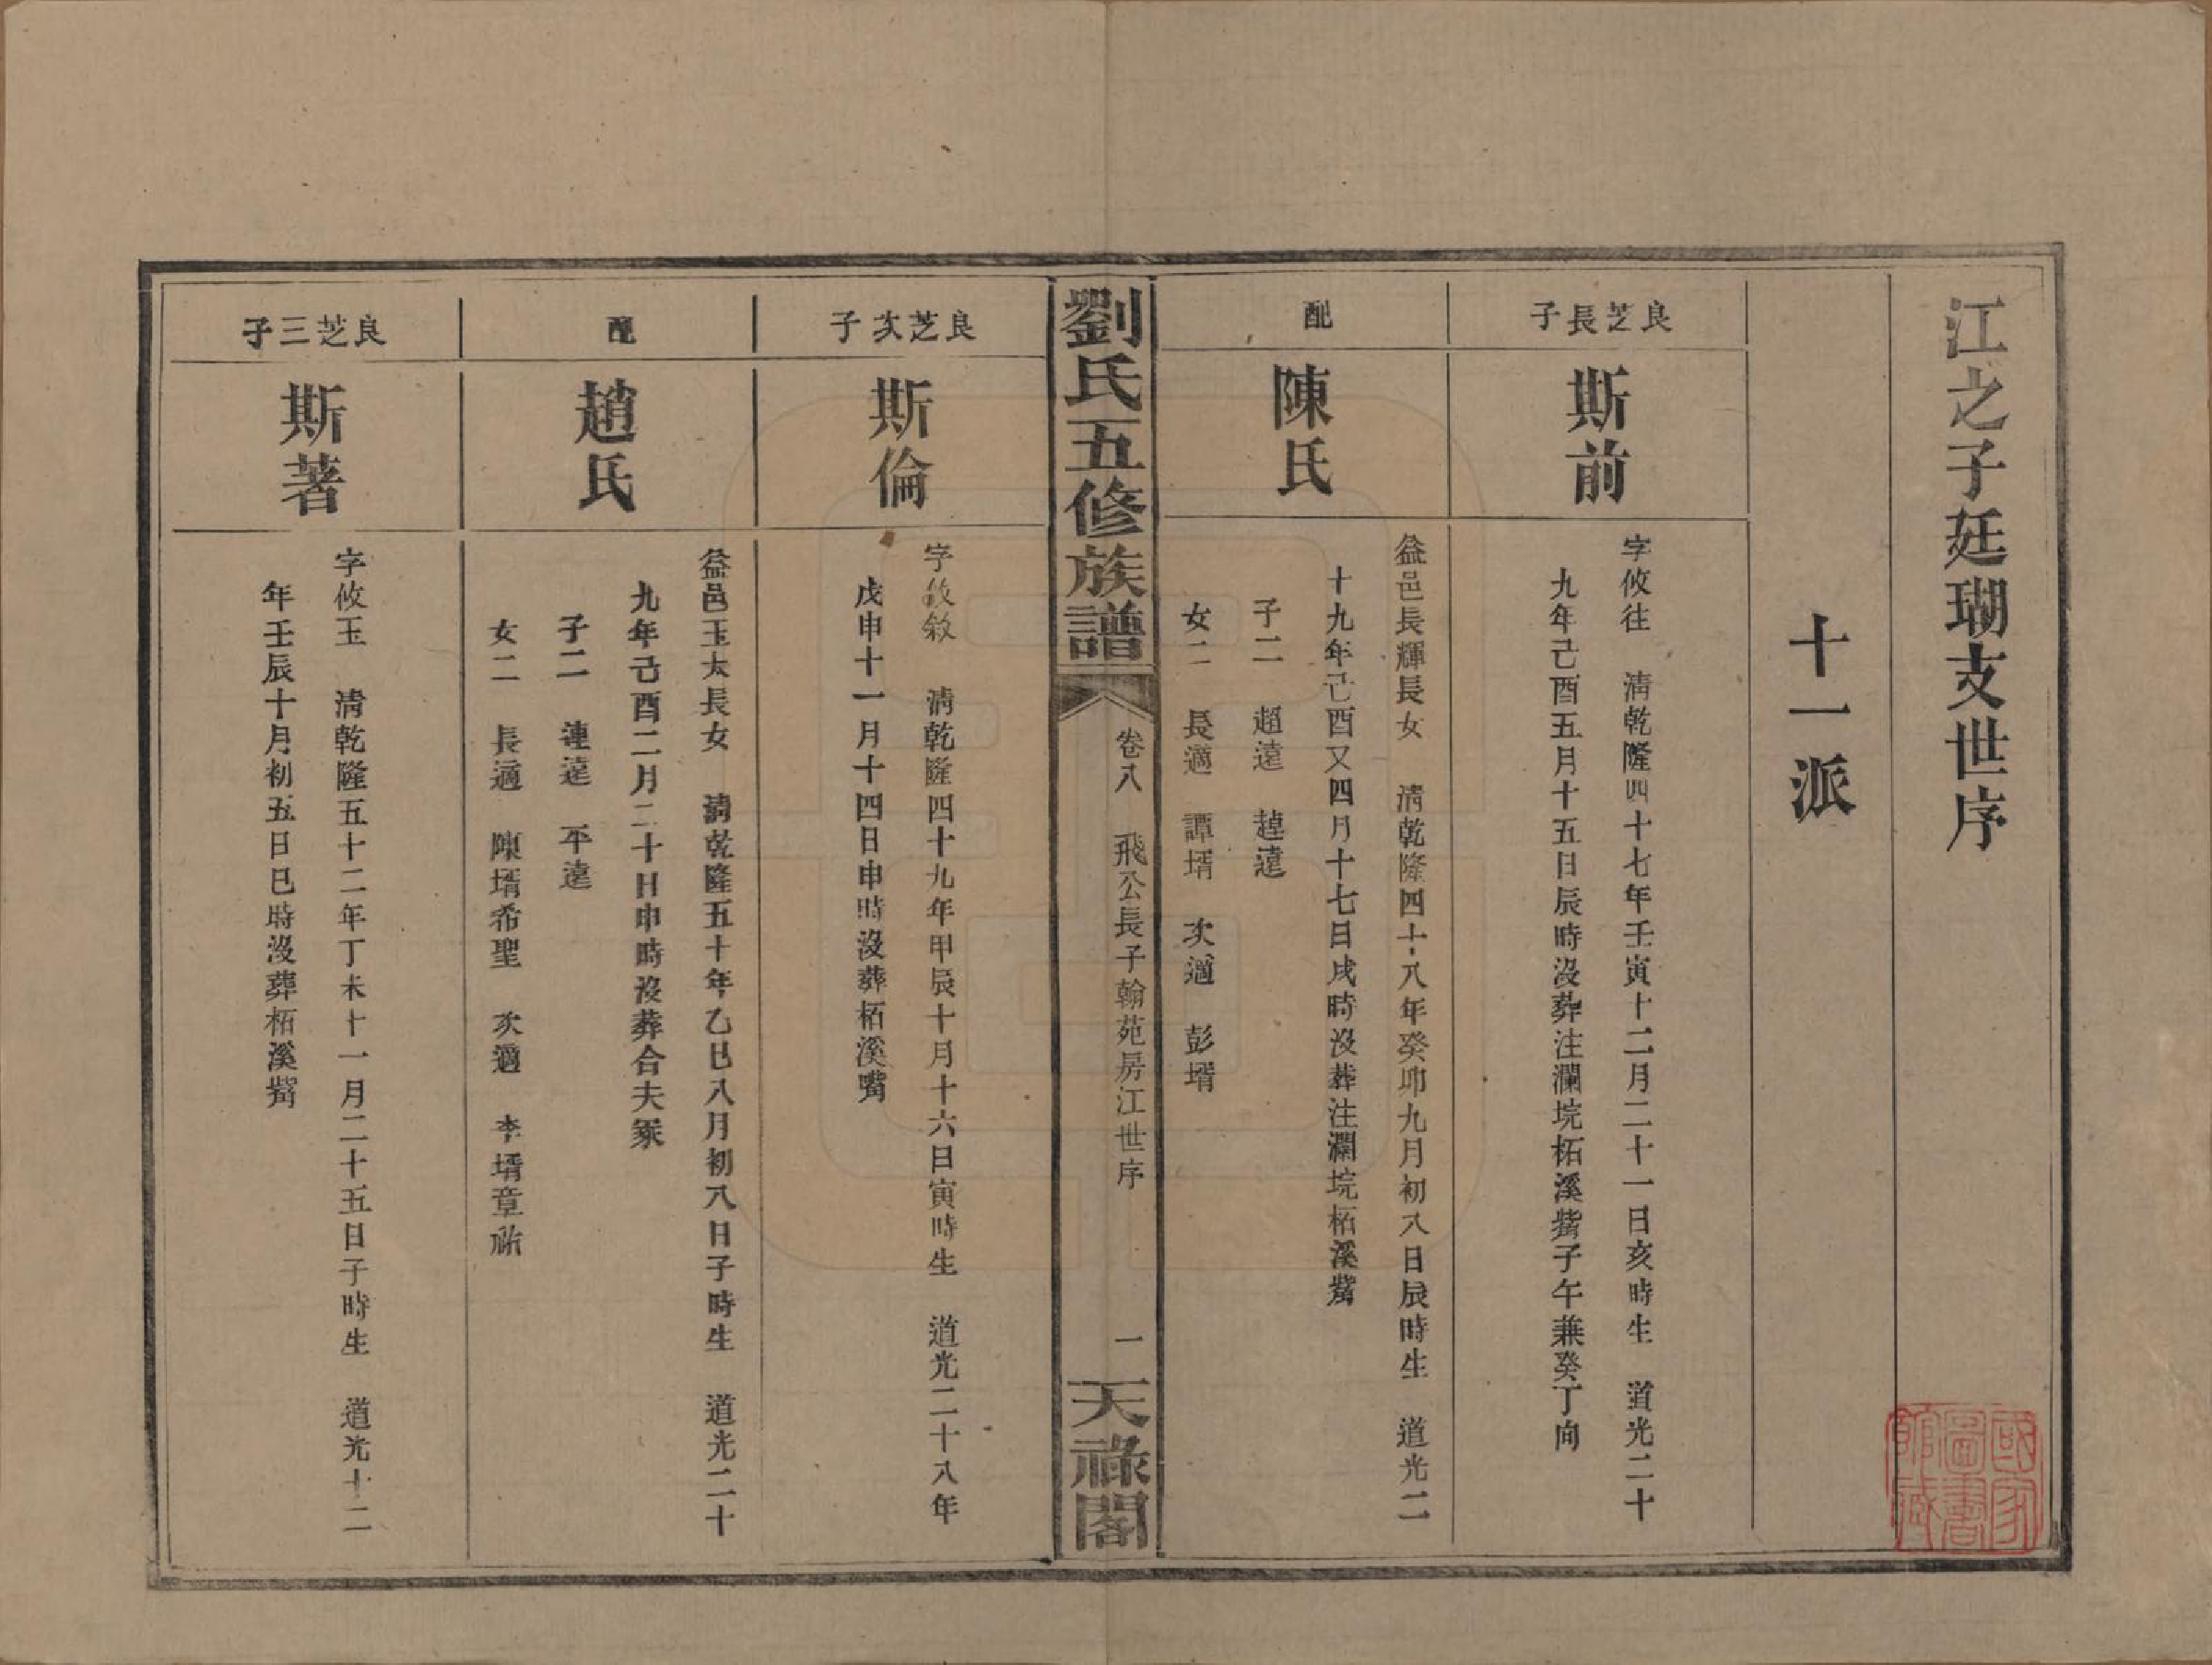 江之子廷瑚支世序
十一派
良芝長子
斯前
字攸往　清乾隆四十七年壬寅十二月二十一日亥時生　道光二十
九年己酉五月十五日辰時沒葬注瀾垸柘溪觜子午兼癸丁向
配
陳氏
益邑長輝長女　清乾隆四十八年癸卯九月初八日辰時生　道光二
十九年己酉又四月十七日戌時沒葬注瀾垸柘溪觜
子二　超遠　趠遠
女二　長適　譚壻　次適　彭壻
劉氏五修族譜
卷八　飛公長子翰苑房江世序　一
天祿閣
良芝次子
斯倫
字攸敘　清乾隆四十九年甲辰十月十六日寅時生　道光二十八年
戊申十一月十四日申時沒葬柘溪嘴
配
趙氏
益邑玉太長女　清乾隆五十年乙巳八月初八日子時生　道光二十
九年己酉二月二十日申時沒葬合夫冢
子二　連遠　平遠
女二　長適　陳壻希聖　次適　李壻章祐
良芝三子
斯著
字攸玉　清乾隆五十二年丁未十一月二十五日子時生　道光十二
年壬辰十月初五日巳時沒葬柘溪觜
國家圖書館藏